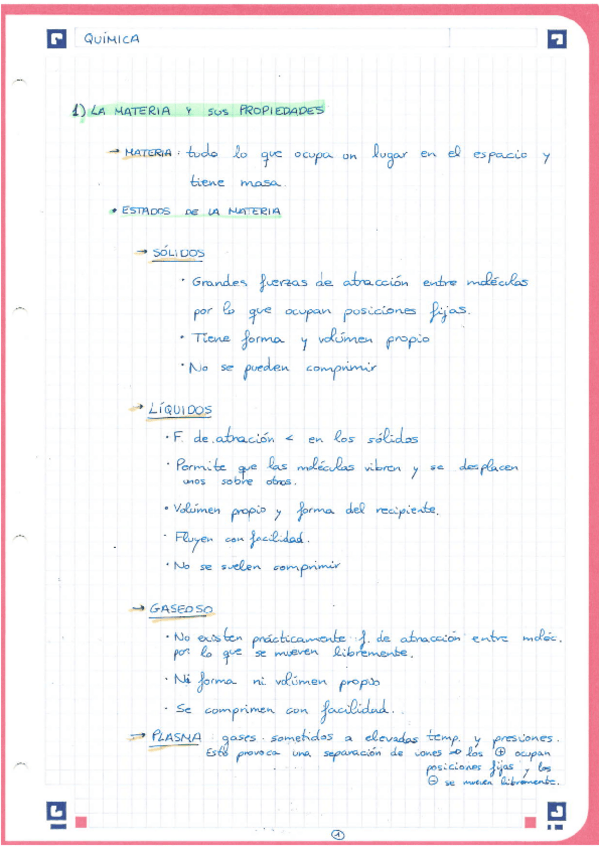 QUÍMICA
1) LA MATERIA Y SUS PROPIEDADES
→ MATERIA: todo lo que ocupa un lugar en el espacio y
tiene masa.
• ESTADOS DE LA MATERIA
→ SÓLIDOS
· Grandes fuerzas de atracción entre moléculas
por lo que ocupan posiciones fijas.
· Tiene forma y volúmen propio
· No se pueden comprimir
→ LÍQUIDOS
· F. de atracción < en los sólidos
· Permite que las moléculas vibren y se desplacen
unos sobre otros.
· Volúmen propio y forma del recipiente.
· Fluyen con facilidad.
· No se suelen comprimir
→ GASEOSO
· No existen prácticamente f. de atracción entre moléc.
por lo que se mueven libremente.
· Ni forma ni volúmen propio
· Se comprimen con facilidad.
→ PLASMA: gases sometidos a elevadas temp. y presiones.
Esto provoca una separación de iones → los ⊕ ocupan
posiciones fijas y los
⊖ se mueven libremente.
1